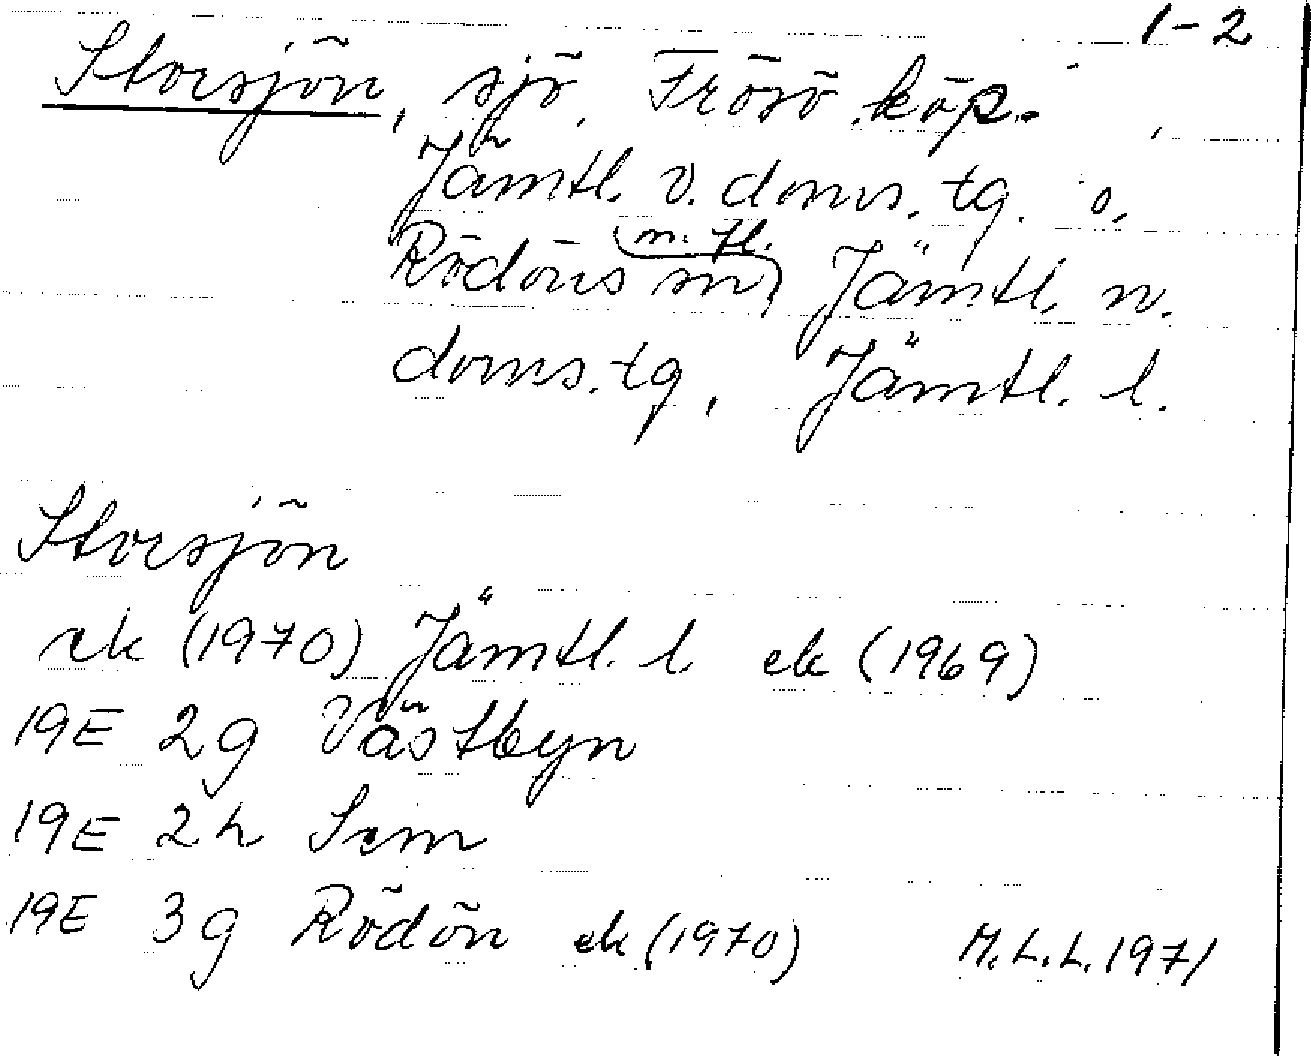 1-2
Storsjön, sjö, Frösö köp.
Jämtl. v. doms. tg. o.
Rödöns sn m. fl., Jämtl. n.
doms. tg, Jämtl. l.
Storsjön
ek (1970) Jämtl. l. ek (1969)
19E 2g Västbyn
19E 2h Sem
19E 3g Rödön ek (1970) M.L.L. 1971